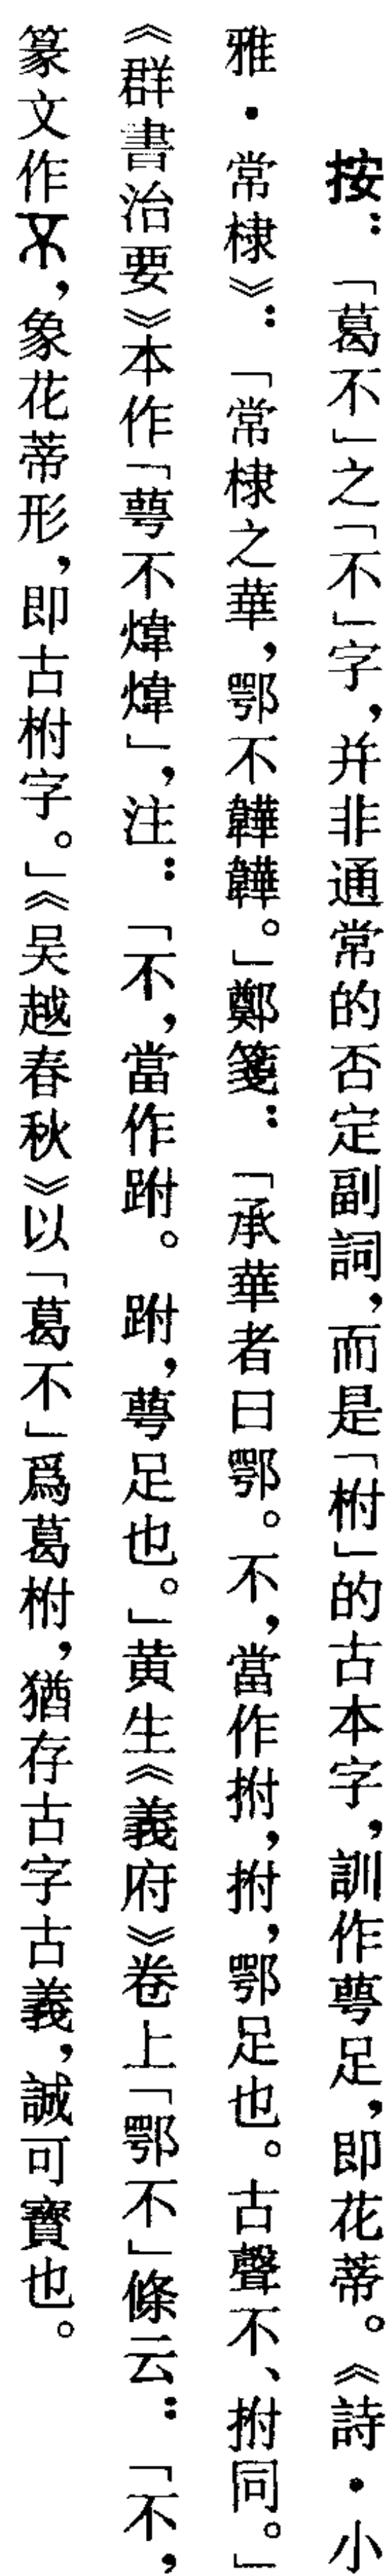 按：「葛不」之「不」字，并非通常的否定副詞，而是「柎」的古本字，訓作萼足，即花蒂。《詩·小
雅·常棣》：「常棣之華，鄂不韡韡。」鄭箋：「承華者曰鄂。不，當作拊，拊，鄂足也。古聲不、拊同。」
《群書治要》本作「萼不煒煒」，注：「不，當作跗。跗，萼足也。」黄生《義府》卷上「鄂不」條云：「不，
篆文作，象花蒂形，即古柎字。」《吴越春秋》以「葛不」爲葛柎，猶存古字古義，誠可寶也。